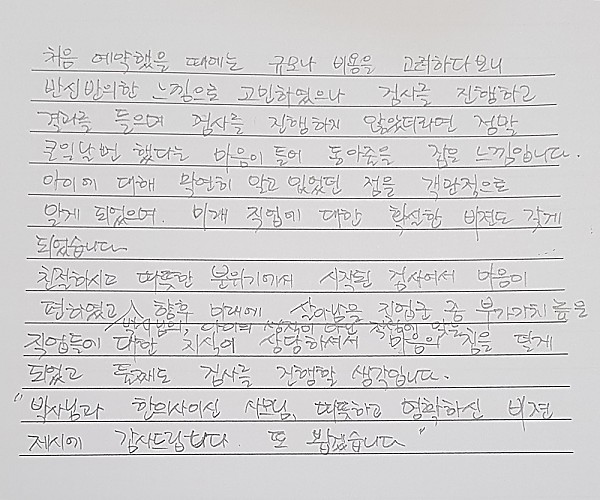 처음 예약했을 때에는 규모나 비용을 고려하다보니
반신반의한 느낌으로 고민하였으나 검사를 진행하고
결과를 들으며 검사를 진행하지 않았더라면 정말
큰일날뻔 했다는 마음이 들어 동아줄을 잡은 느낌입니다.
아이에 대해 막연히 알고 있었던 점을 객관적으로
알게 되었으며. 미래 직업에 대한 확실한 비전도 갖게
되었습니다
친절하시고 따뜻한 분위기에서 시작된 검사에서 마음이
편하였고 향후 미래에 살아남을 직업군 중 부가가치 높은
아이의 성적에
직업들에 대한 지식에 상당하셔서 마음의 짐을 덜게
되었고 둘째도 검사를 진행할 생각입니다.
"박사님과 한의사이신 사모님, 따뜻하고 명확하신 비전
제시에 감사드립니다. 또 뵙겠습니다"